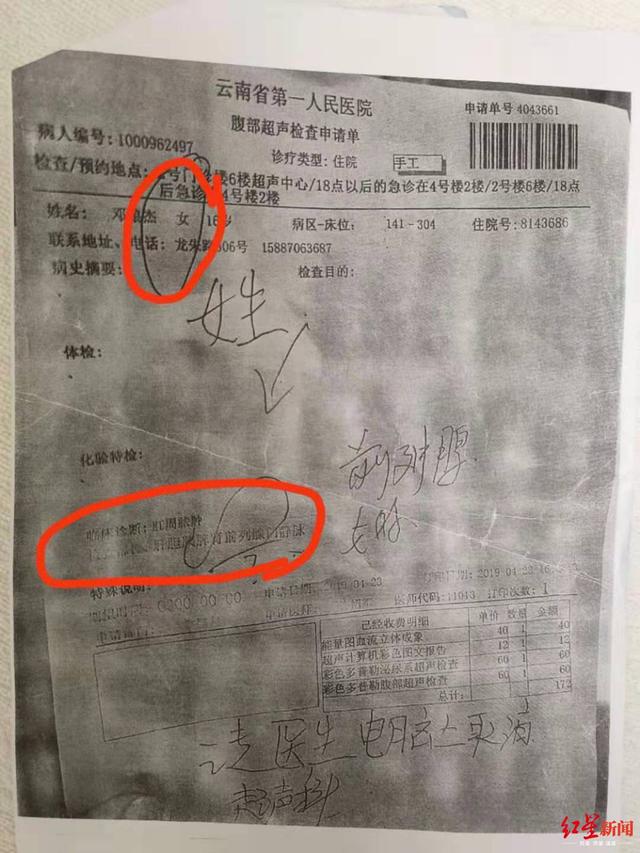 云南省第一人民医院
申请单号 4043661
腹部超声检查申请单
病人编号: 1000962497
诊疗类型: 住院 手工
检查/预约地点: 号门 楼6楼超声中心/18点以后的急诊在4号楼2楼/2号楼6楼/18点
后急诊 4号楼2楼
姓名: 邓 杰 女 16岁 病区-床位: 141-304 住院号: 8143686
联系地址、电话: 龙朱路306号 15887063687
病史摘要: 检查目的:
女生
体检:
化验特检:
前列腺
临床诊断: 肛周脓肿
肝胆胰脾肾前列腺
?
特殊说明:
申请日期: 2019-04-23
2019-04-22
0000 00 00 申请医师 医师代码: 11043 打印次数: 1
已经收费明细 单价 数量 金额
能量图血流立体成象 40 1 40
超声计算机彩色图文报告 12 1 12
彩色多普勒泌尿系超声检查 60 1 60
彩色多普勒腹部超声检查 60 1 60
总计: 172
请医生电脑上取消
超声科
红星新闻